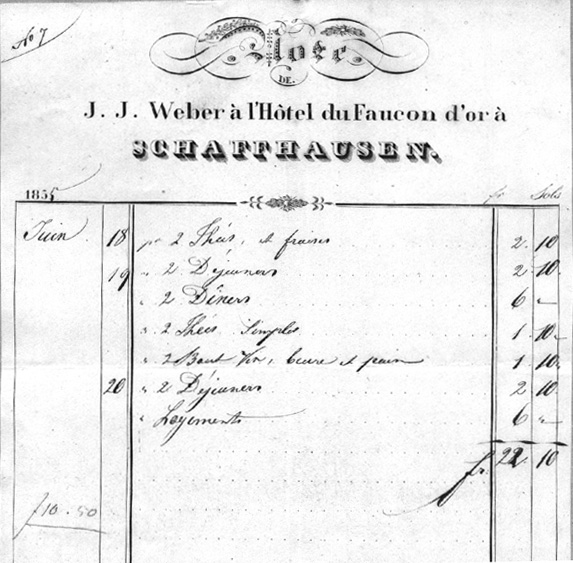 No 7
Note
DE
J. J. Weber à l'Hôtel du Faucon d'or à
SCHAFFHAUSEN.
1835 fr Sols
Juin 18 pr 2 Thés, et fraises 2. 10
19 " 2 Déjeuners 2 10.
" 2 Dîners 6 "
" 2 Thés Simples 1. 10.
" 2 Bout Vin, beure et pain 1 10.
20 " 2 Déjeuners 2 10
" Logements 6 "
fr. 22. 10
f 10.50